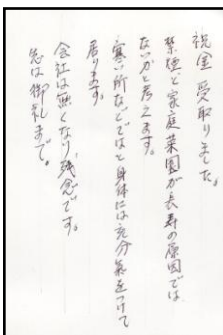 祝金受取りました。
禁煙と家庭菜園が長寿の原因では
ないかと考えます。
寒い所なのではと身体には充分気をつけて
居ります。
会社は無くなり残念です。
先は御礼まで。